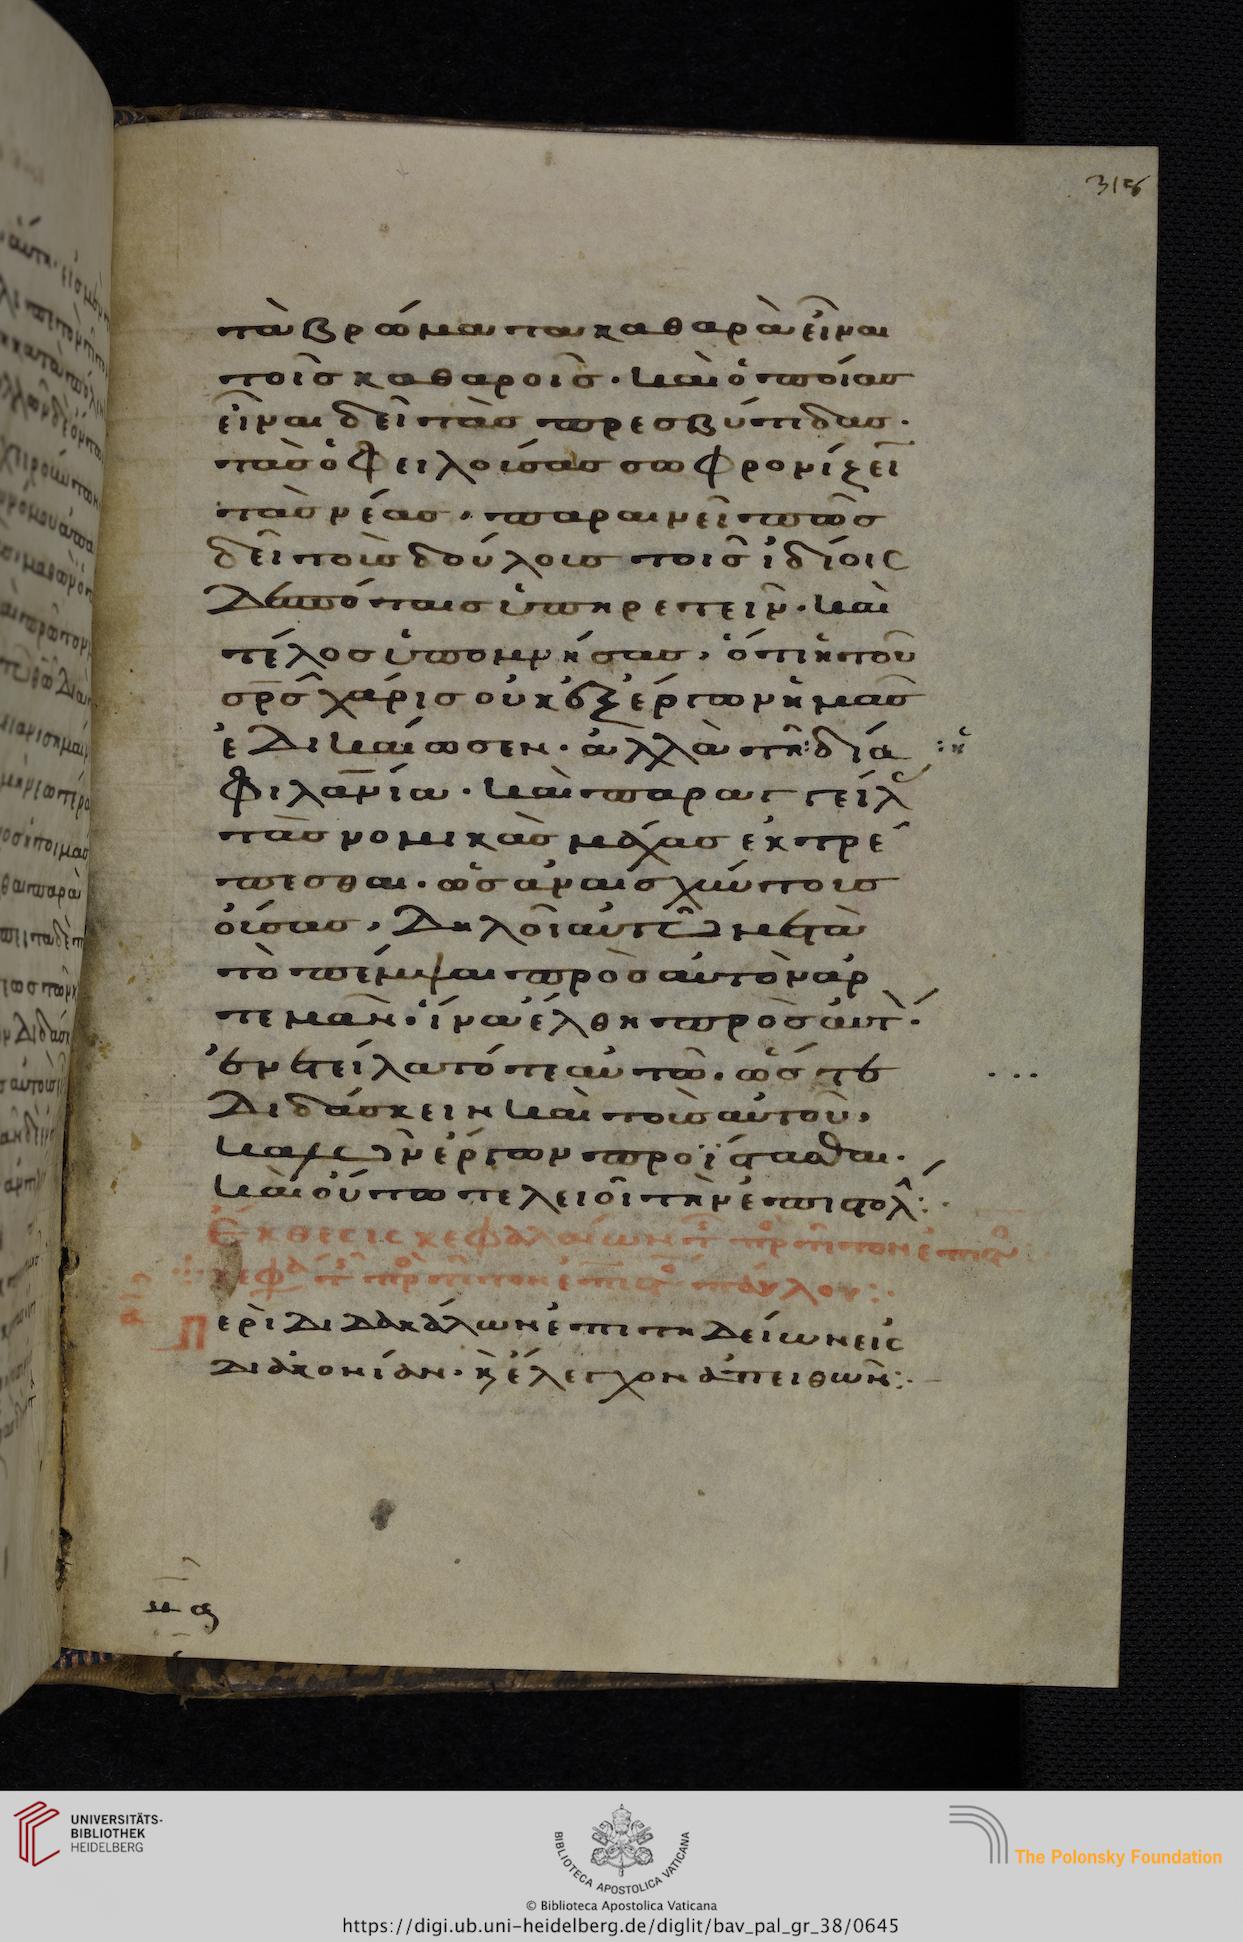 315
τὰ βρώματα καθαρὰ εἶναι
τοῖς καθαροῖς · καὶ ὁποίας
εἶναι δεῖ τὰς πρεσβύτιδας ·
τὰς ὀφειλούσας σωφρονίζει
τὰς νέας · παραινεῖ πῶς
δεῖ τοῖς δούλοις τοῖς ἰδίοις
δεσπόταις ὑπηρετεῖν · καὶ
τέλος ὑπομνήσας, ὅτι ἡ τοῦ
σρ̅ς χάρις οὐκ ἐξ ἔργων ἡμᾶς
ἐδικαίωσεν · ἀλλὰ τῆ : διά : ἡ
φιλανία · καὶ παραγγείλ
τὰς νομικὰς μάχας ἐκτρέ
πεσθαι · ὡς ἀναισχύντοις
οὔσας, δηλοῖ αὐτῶ μετὰ
τὸ πέμψαι πρὸς αὐτὸν ἀρ
τεμᾶν · ἵνα ἔλθη πρὸς αὐτ ·
ἐνετείλατό τε αὐτῶ · ὥστε
διδάσκειν καὶ τοὺς αὐτοῦ,
καλῶν ἔργων προΐστασθαι ·
καὶ οὕτω τελειοῖ τὴν ἐπιστολ :
Ἔκθεσις κεφαλαίων τ πρ τίτον ἐπιστ
κεφ τ πρ τίτον ἐπιστ παύλου :
α
Περὶ διδασκάλων ἐπιτηδείων εἰς
διακονίαν · κ ἔλεγχον ἀπειθῶν :
UNIVERSITÄTS-
BIBLIOTHEK
HEIDELBERG
BIBLIOTECA APOSTOLICA VATICANA
The Polonsky Foundation
© Biblioteca Apostolica Vaticana
https://digi.ub.uni-heidelberg.de/diglit/bav_pal_gr_38/0645